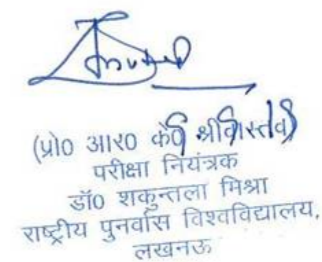 (प्रो0 आर0 के0 श्रीवास्तव)
परीक्षा नियंत्रक
डॉ0 शकुन्तला मिश्रा
राष्ट्रीय पुनर्वास विश्वविद्यालय,
लखनऊ